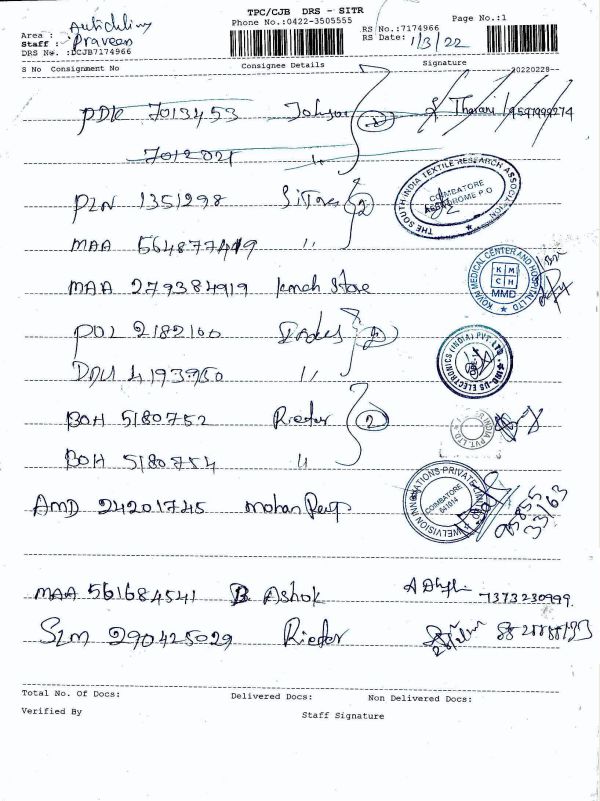 TPC/CJB DRS - SITR
Phone No.:0422-3505555 Page No.:1
Area :
Staff : Praveen
RS No.:7174966
DRS No. :DCJB7174966 RS Date: 1/3/22
S No Consignment No Consignee Details Signature 20220228--
PDK 7013453 2 Tharani 9597999274
7012021 "
PLN 1351298 SiTora 2
MAA 564877419 "
THE SOUTH INDIA TEXTILE RESEARCH ASSOCIATION
COIMBATORE
AERODROME P.O
MAA 279384919 kmch Store
KOVAI MEDICAL CENTER AND HOSPITAL LTD
K M
C H
MMD
POL 2182160 2
4193950 "
INDO-US ELECTRONICS (INDIA) PVT. LTD.
BOH 5180752 Rieter 2
BOH 5180754 "
INDIA PVT. LTD.
AMD 24201745 mohan
WELVISION INNOVATIONS PRIVATE LIMITED
COIMBATORE
641014
95855
33163
MAA 561684541 B. Ashok 7373230999
SLM 290425029 Rieter
Total No. Of Docs: Delivered Docs: Non Delivered Docs:
Verified By Staff Signature